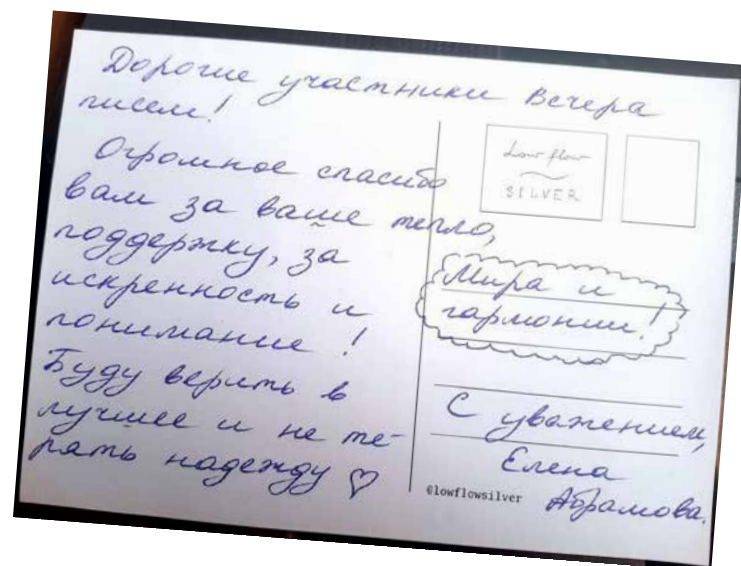 Дорогие участники Вечера
писем!
Огромное спасибо
вам за ваше тепло,
поддержку, за
искренность и
понимание!
Буду верить в
лучшее и не те-
рять надежду ♡
Low flow
SILVER
Мира и
гармонии!
С уважением,
Елена
Абрамова.
@lowflowsilver